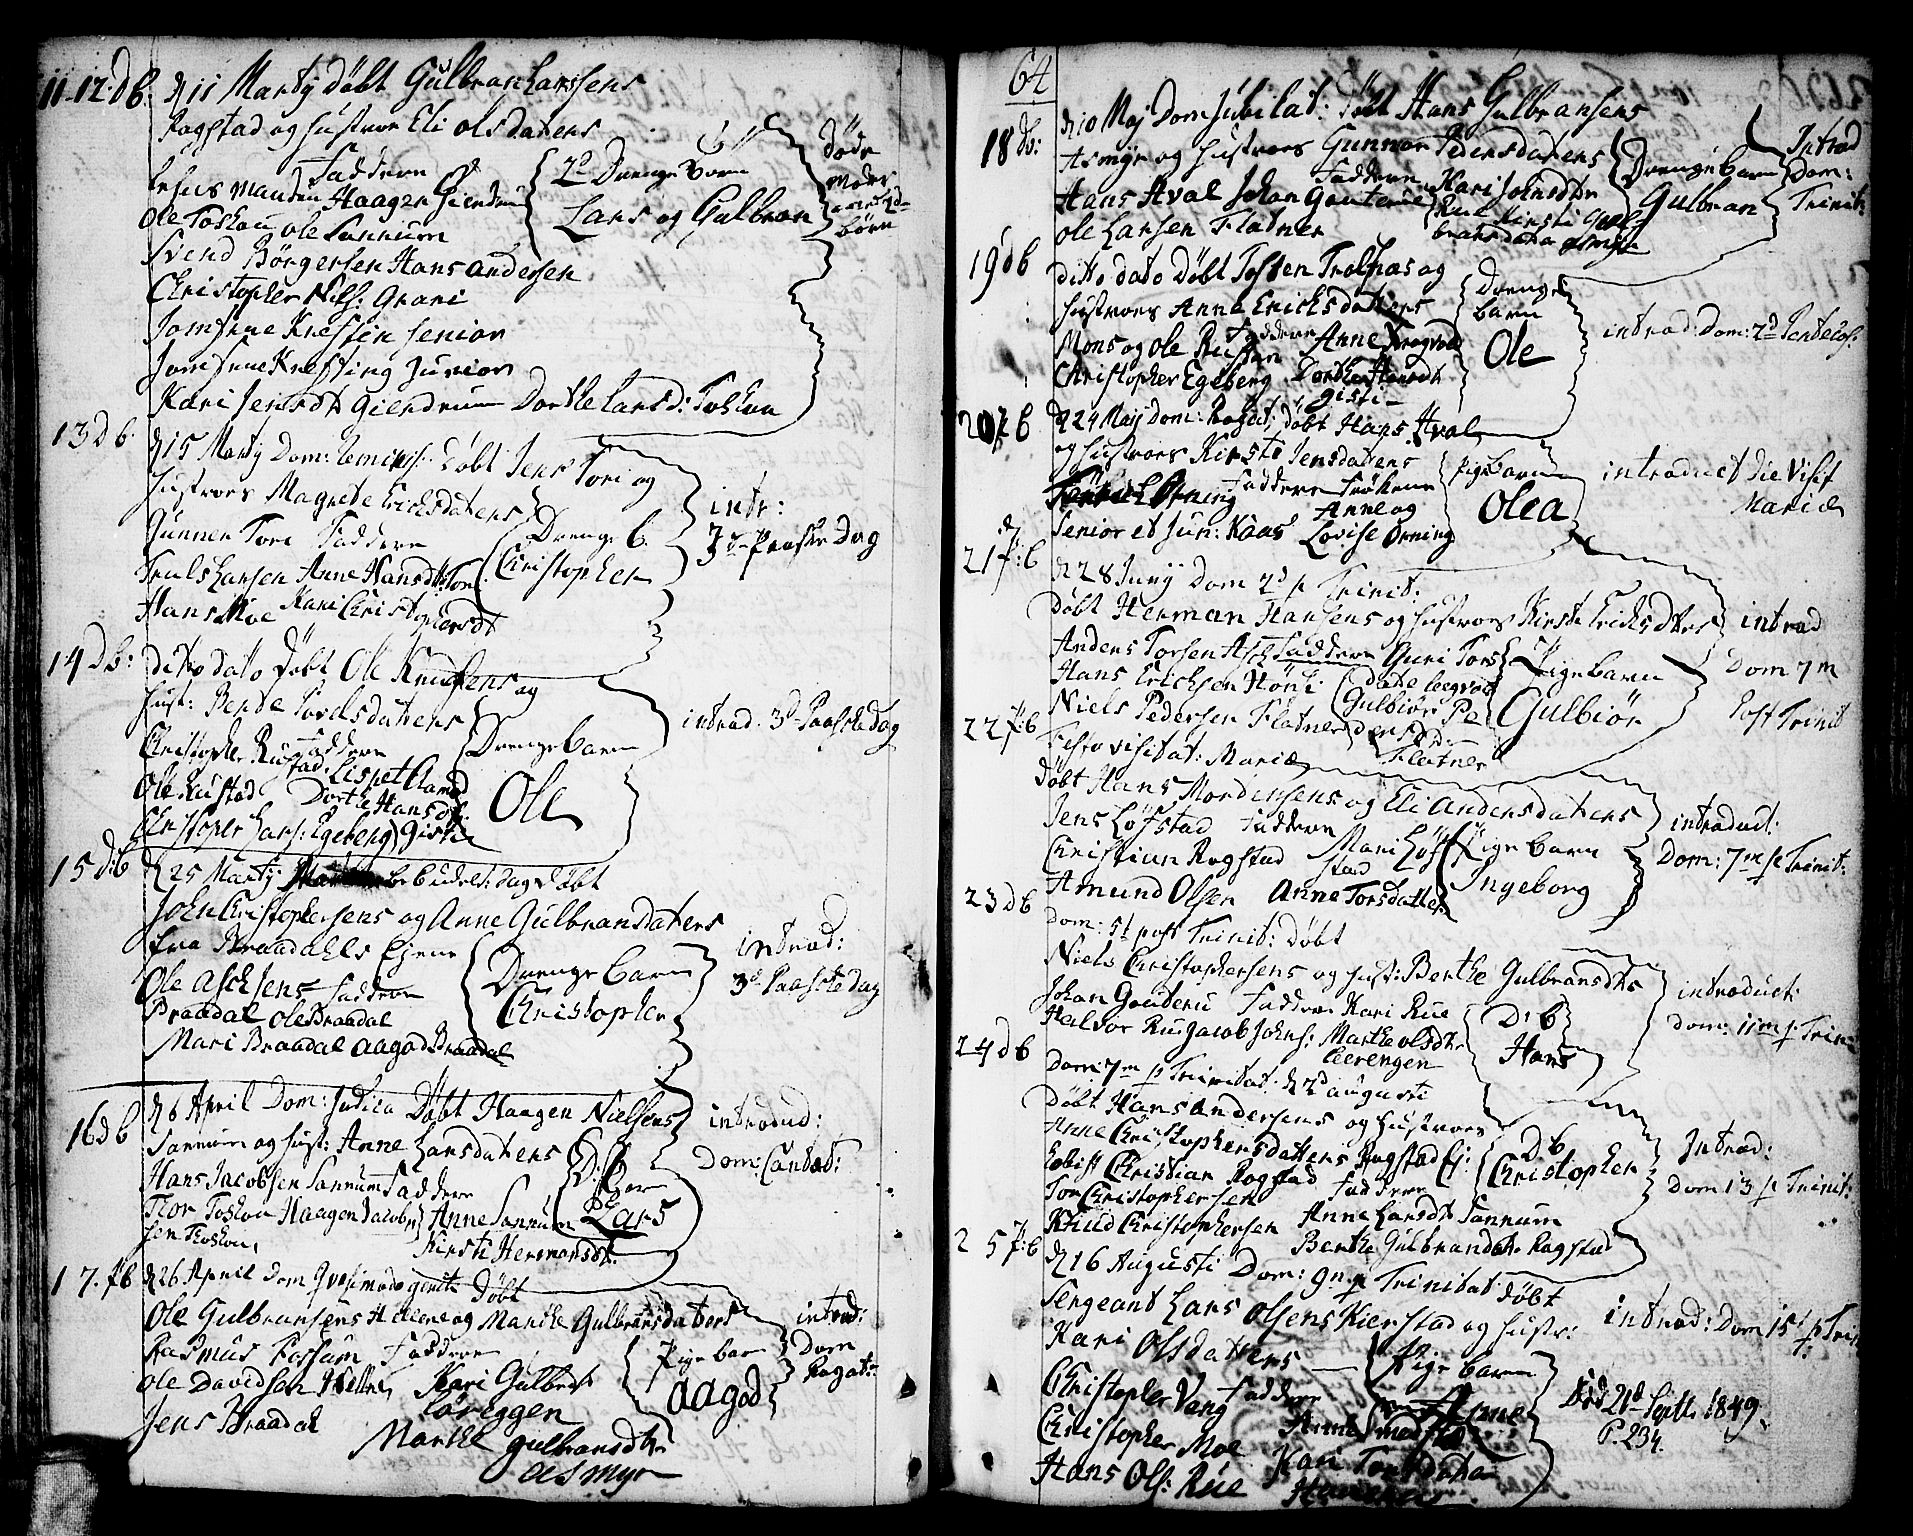 11-12. db. d 11 Martÿ døbt Gulbran Larssens
Rogstad og hustroe Eli Olsdaters
Faddere
manden Haagen Gierdrum
2de Drenge børn
Lars og Gulbran
Døde
Moder
børn
Ole Toskou Ole Sannum
Svend Børgersen Hans Andersen
Christopher Nils: Grari
Jomfrue Krefting Senior
Jomfrue Krefting Junior
Kari Jensdtr Gierdrum Dorthe Larsd: Toskou
13 db. d 15 Martÿ Dom: Reminis: døbt Jens Tori og
hustroes Magrete Erichsdaters
Gunner Tori Faddere
Truls Larsen Anne Hansdtr Tori
Hans Moe Kari Christophersdt
Drenge b.
Christopher
intr:
3d Paaske Dag
14 db: dito dato døbt Ole Knudsens og
hust: Berte Povelsdaters
Faddere
Christopher Rustad Lispet
Ole Rustad Dorthe Hansdtr
Christopher Lars: Egeberg Gisti
Drenge barn
Ole
introd. 3d Paaske dag
15 db d 25 Martÿ bebudels: dag døbt
John Christophersens og Anne Gulbransdaters
fra Braadahls Ejene
Ole Aschsens Faddere
Braadal Ole Braadal
Mari Braadal Aagod Braadal
Drenge barn
Christopher
introd:
3d Paaske dag
16 db d 6 April Dom: Judica Døbt Haagen Nielsens
Sannum og hust: Anne Larsdaters
Hans Jacobsen Sannum Faddere
Thor Toskou Haagen Jacob- Anne Sannum
sen Toskou, Kirsti Hermansdt.
D: Barn
Lars
introdud:
Dom: Cantat:
17. p b d 26 April Dom Qvasimodo genit: Døbt
Ole Gulbransens Hellene og Marthe Gulbransdaters
Rasmus Fossum Faddere
Ole Davidson Helle, Kari Gulbrdt
Jens Braadal Løreggen
Marthe Gulbransdtr
Asmyr
Pige barn
Aagod
introd:
Dom
Rogat:
64
18 db: d 10 Maj Dom Jubilat: døbt Hans Gulbransens
Asmyr og hustroes Gunnor Pedersdaters
Faddere
Hans Hval Johan Gouterue Kari Johnsdtr
Ole Larsen Flatner Rue Kirsti Gul-
bransdatter Asmyr
Drenge barn
Gulbran
Introd
Dom:
Trinit:
19 db ditto dato Døbt Tosten Trolsnas og
hustroes Anne Erichsdaters
Faddere
Mons og Ole Rustan Anne
Christopher Egeberg Dorthe Hansdtr
Gisti
Drenge
barn
Ole
introd: Dom: 2d Pentecos:
20 p b d 24 Maj Dom: Rogat: døbt Hans Hval
og hustroes Kirste Jensdaters
Faddere Frøkene
Anne og
Senior et Jun: Kaas Lovise Orning
Pige Barn
Olea
introduct die Visit
Mariæ
21 p: b d 28 Junÿ Dom 2d p Trinit:
døbt Herman Hansens og hustroes Kirste Erichsdtrs
Anders Torsen Asch Faddere Guri Tors
Hans Erichsen Høni date
Niels Pedersen Flatner Gulbiør Pe
dersd:
Flatner
Pige barn
Gulbiør
introd
Dom 7m
Post Trinit
22 p: b Festo visitat: Mariæ
døbt Hans Mordensens og Eli Andersdaters
Jens Løfstad Faddere Mari Løf
Christian Rogstad stad
Amund Olsen Anne Torsdatter
Pige barn
Ingeborg
introduct:
Dom: 7m p Trinit:
23 db Dom: 5t post Trinit: døbt
Niels Christophersens og hust: Berthe Gulbransdtrs
Johan Gouteru Faddere Kari Rue
Halvor Rue Jacob Johns: Marthe Olsdtr
Leerengen
D: b
Hans
introduct:
Dom: 11m p Trin:
24 db Dom: 7m p Trinitat: d 2d Augusti
Døbt Hans Andersens og hustroes
Anne Christophersdatters Rogstad Ej:
Christian Rogstad Faddere
Tor Christophersen
Knud Christophersen Anne Larsdtr Sannum
Berthe Gulbransdtr Rogstad
D b
Christopher
Introd:
Dom 13 p Trinit:
25 p: b d 16 Augusti Dom: 9n p Trinitat: døbt
Sergeant Lars Olsens Kierstad og hustr:
Kari Olsdatters
Christopher Vang Faddere
Christopher Moe
Hans Ols: Rue Kari Torsdatter
Pige barn
Anne
introd: Dom 15 p Trin
Død 21d Septb. 1849.
P. 234.